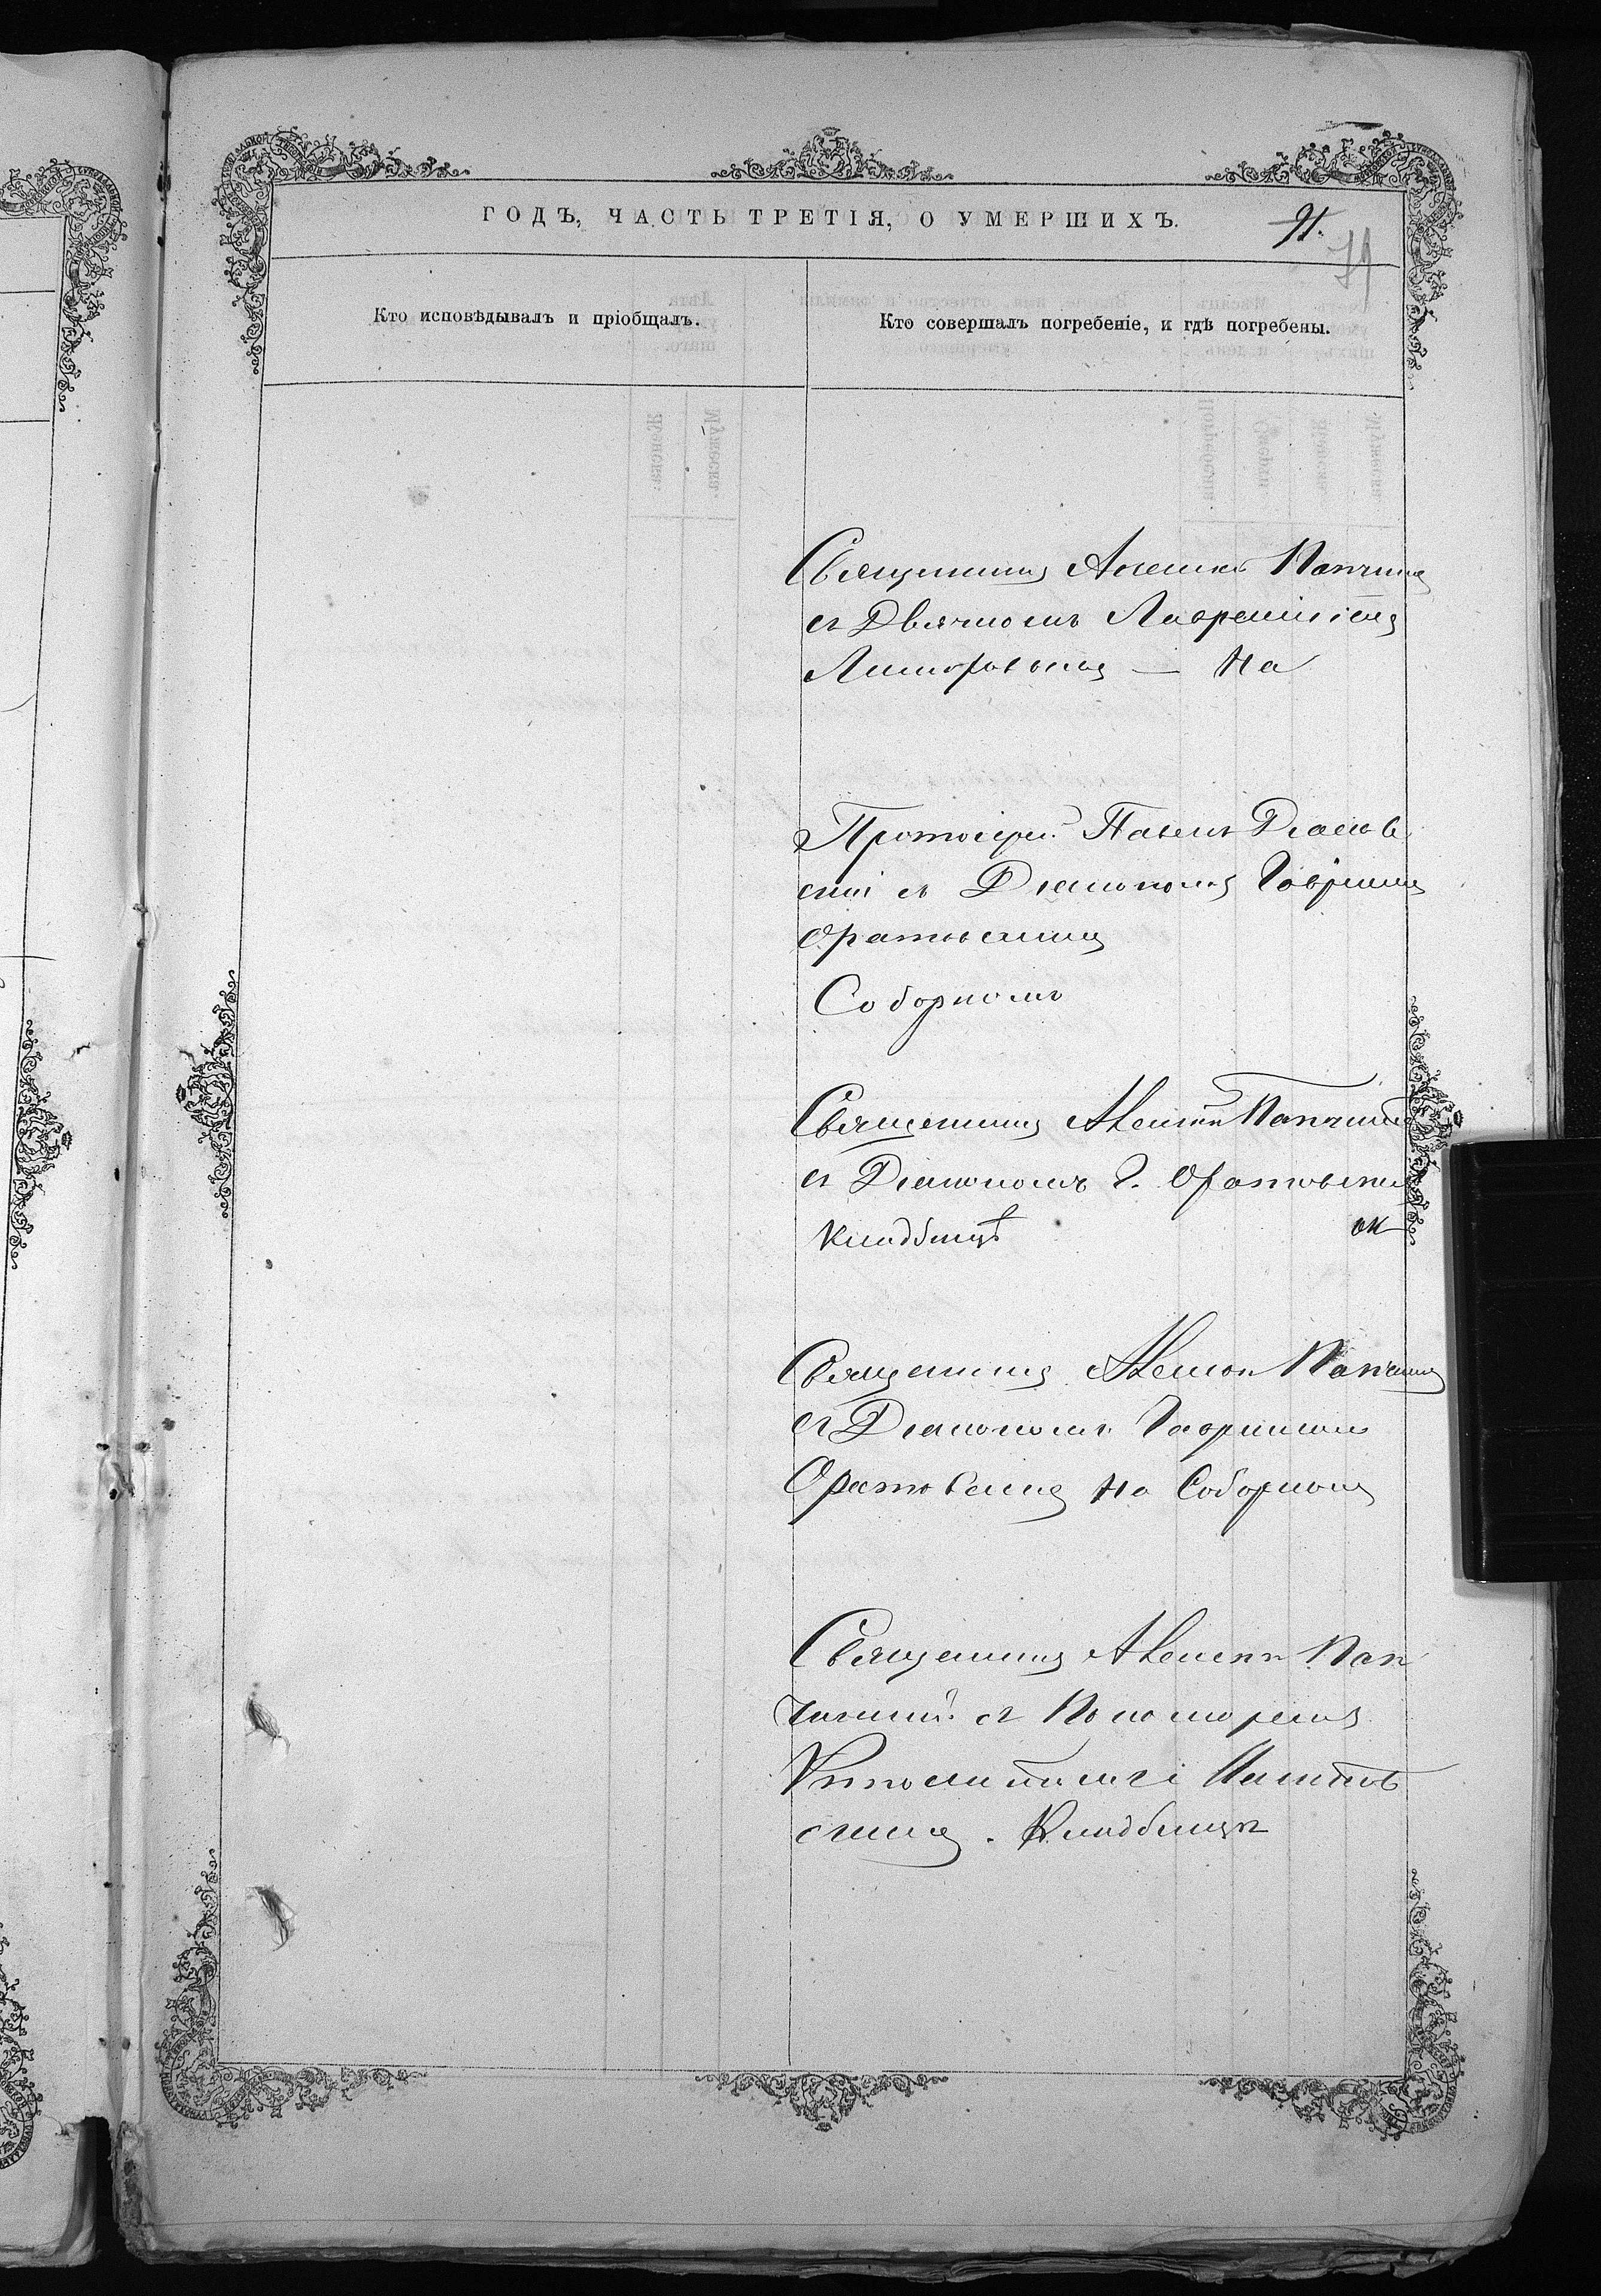 ГОДЪ, ЧАСТЬ ТРЕТІЯ, О УМЕРШИХЪ.
91.
79
Кто исповѣдывалъ и пріобщалъ.
Кто совершалъ погребеніе, и гдѣ погребены.
Священникъ Алексѣй
съ Дьячкомъ Лаврентіемъ
На
Протоіерей Павелъ
скій съ Діакономъ Гавріиломъ
Оратовскимъ
Соборномъ
Священникъ Алексѣй
съ Діакономъ Г. Оратовским
кладбищѣ
Священникъ Алексѣй
съ Діакономъ Гавріиломъ
Оратовскимъ на Соборномъ
Священникъ Алексѣй
съ Пономаремъ
скимъ. Кладбищѣ